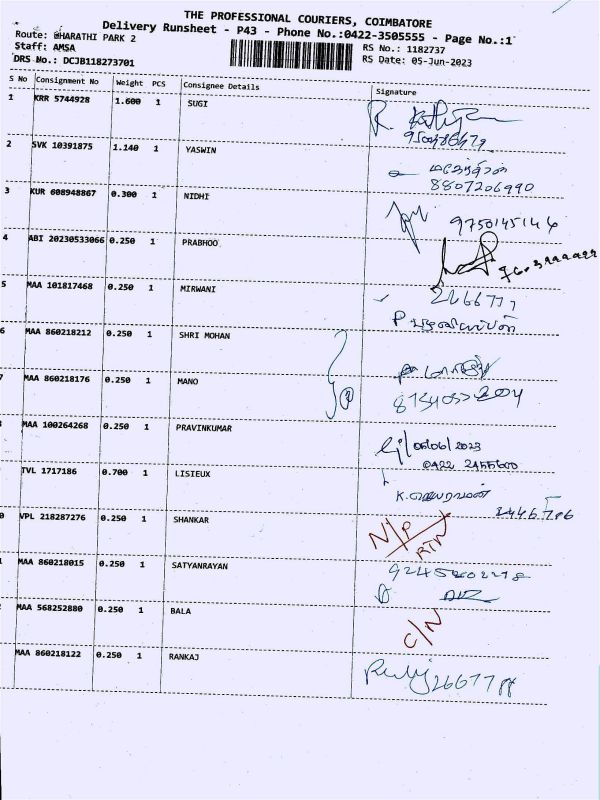 THE PROFESSIONAL COURIERS, COIMBATORE
Delivery Runsheet - P43 - Phone No.:0422-3505555 - Page No.:1
Route: BHARATHI PARK 2
RS No.: 1182737
Staff: AMSA
RS Date: 05-Jun-2023
DRS No.: DCJB118273701
S No Consignment No Weight PCS Consignee Details Signature
1 KRR 5744928 1.600 1 SUGI
2 SVK 10391875 1.140 1 YASWIN
8807206990
3 KUR 608948867 0.300 1 NIDHI
9750145144
4 ABI 20230533066 0.250 1 PRABHOO
5 MAA 101817468 0.250 1 MIRWANI
6 MAA 860218212 0.250 1 SHRI MOHAN
7 MAA 860218176 0.250 1 MANO
MAA 100264268 0.250 1 PRAVINKUMAR
05/06/2023
0422 2455600
TVL 1717186 0.700 1 LISIEUX
0 VPL 218287276 0.250 1 SHANKAR N/P
RTN
1 MAA 860218015 0.250 1 SATYANRAYAN
2 MAA 568252880 0.250 1 BALA C/N
MAA 860218122 0.250 1 RANKAJ